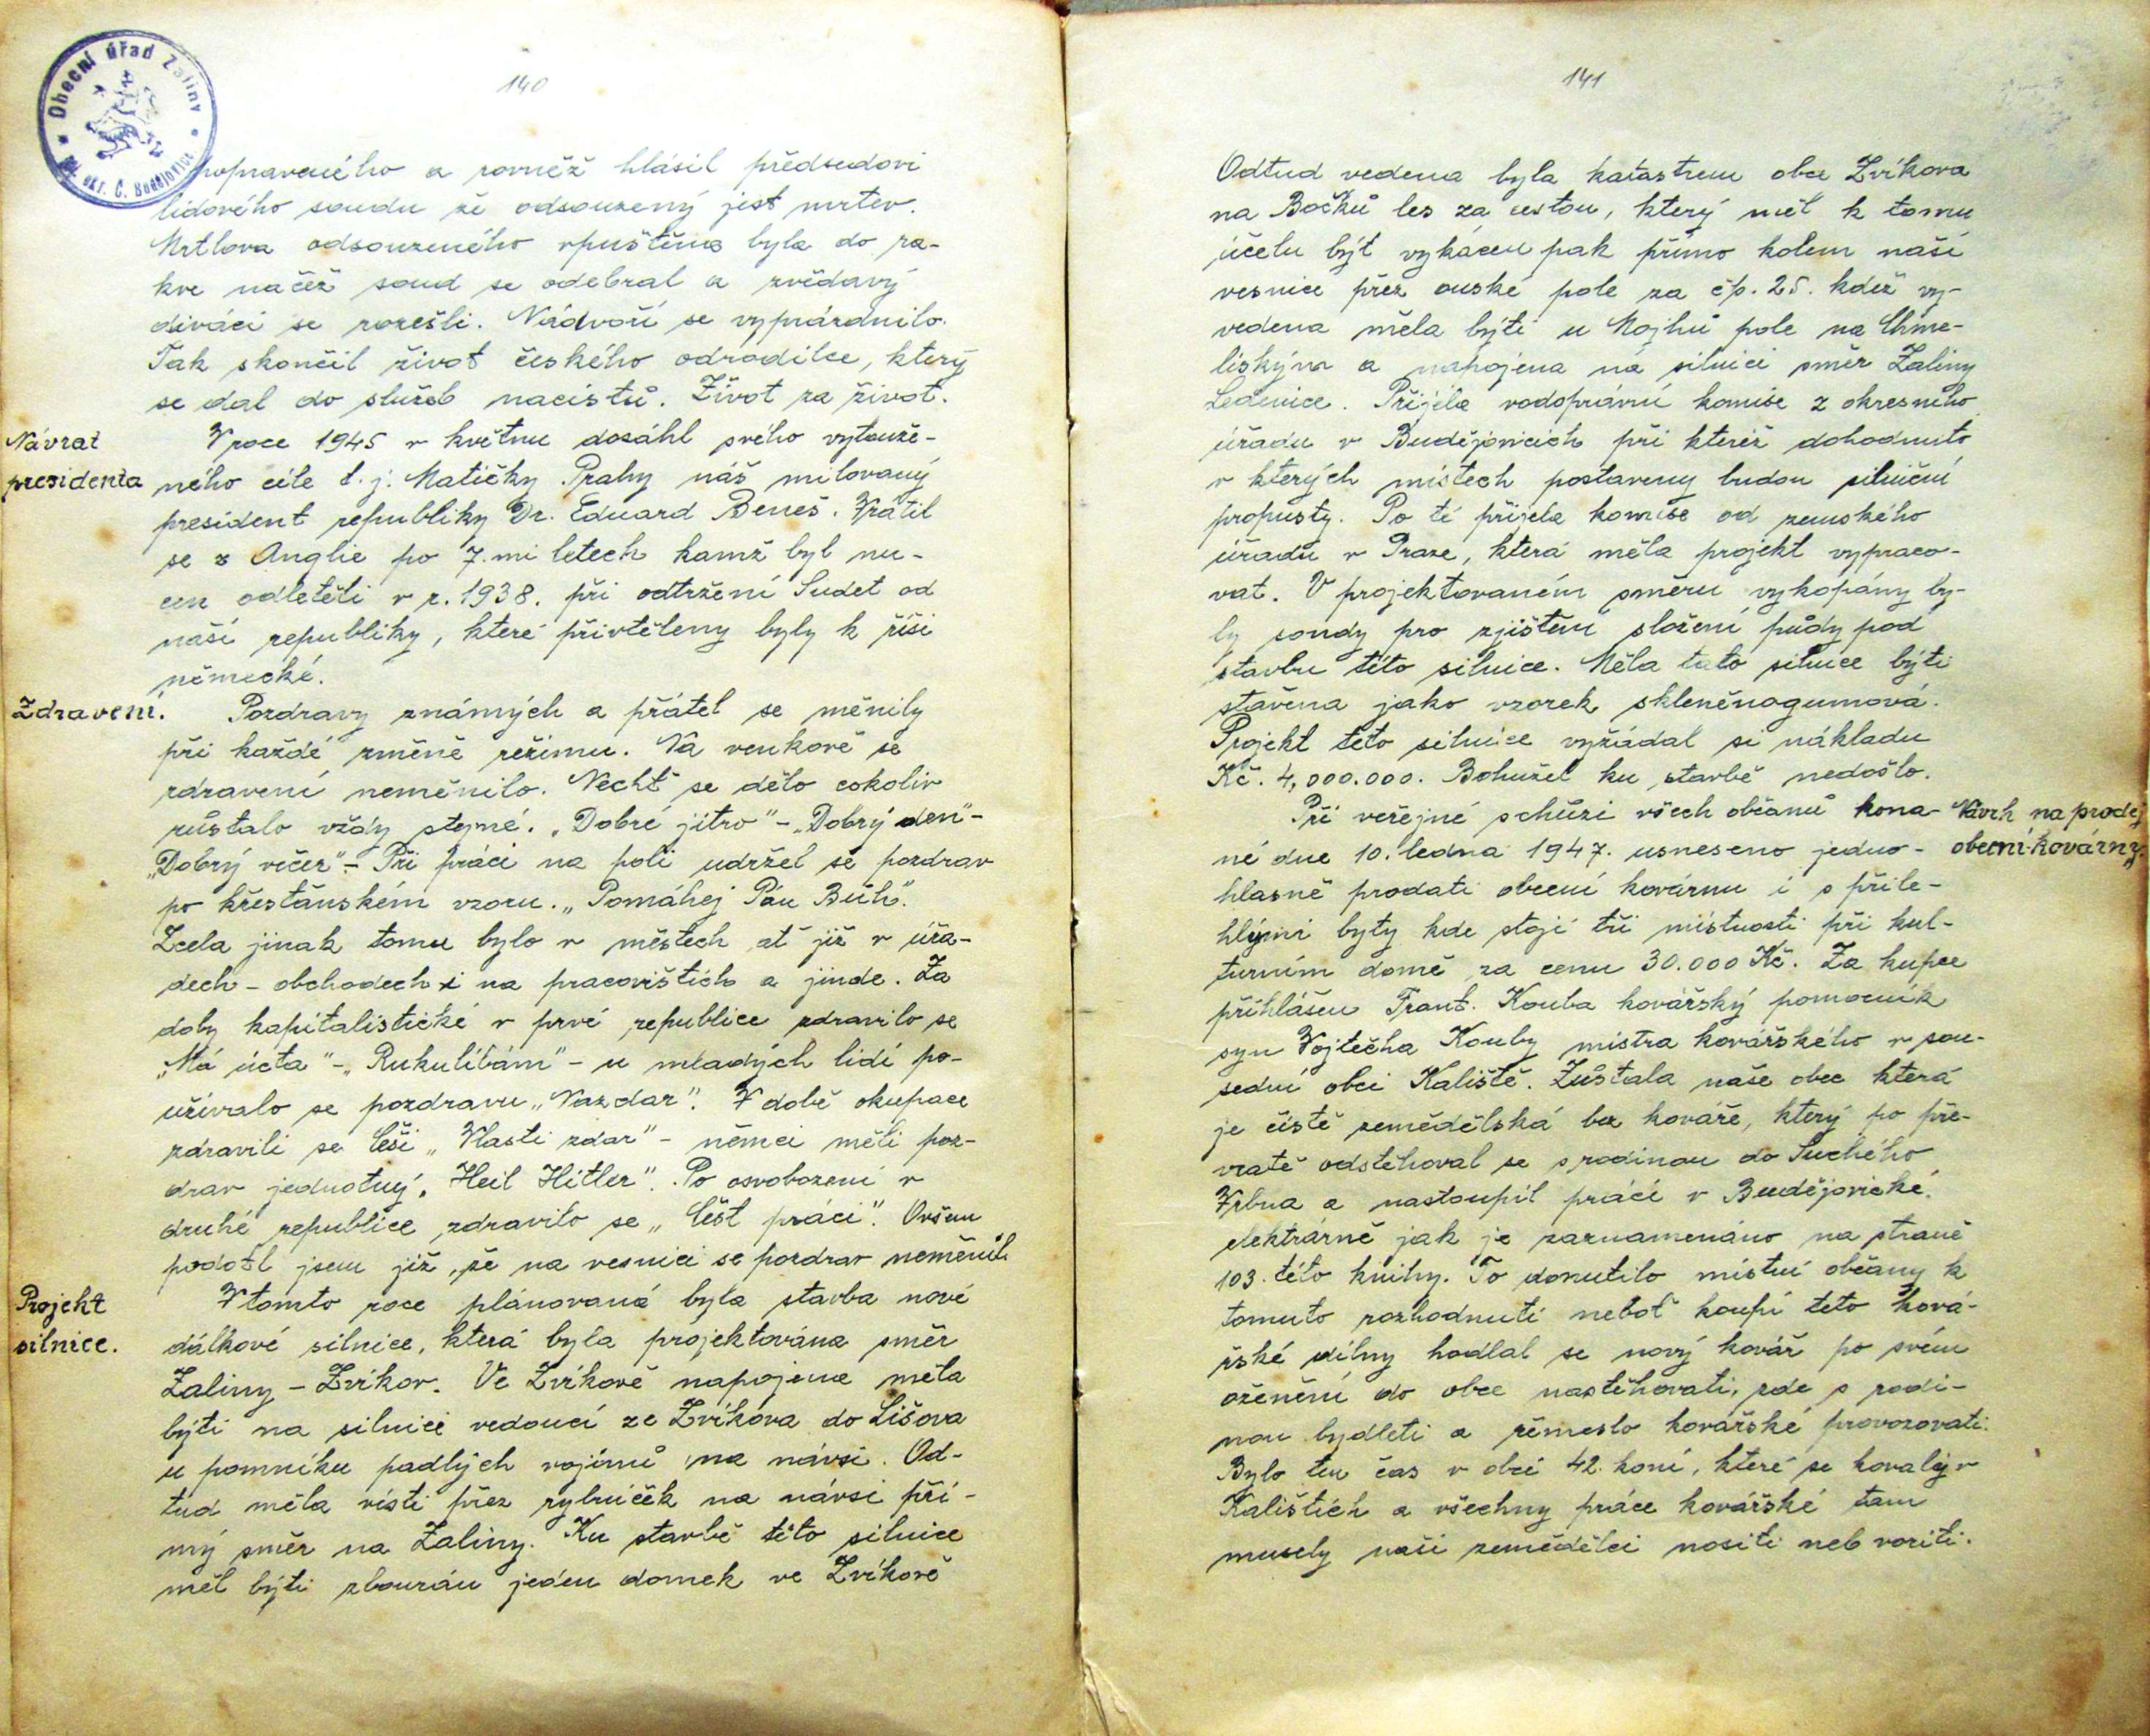 Obecní úřad Zaliny
okr. Č. Budějovice
140
popraveného a rovněž hlásil předsedovi
lidového soudu že odsouzený jest mrtev.
Mrtvola odsouzeného vpuštěna byla do ra-
kve načež soud se odebral a zvědavý
diváci se rozešli. Nádvoří se vyprázdnilo.
Tak skončil život českého odrodilce, který
se dal do služeb nacistů. Život za život.
Návrat
presidenta
V roce 1945 v květnu dosáhl svého vytouže-
ného cíle t. j. Matičky Prahy náš milovaný
president republiky Dr. Eduard Beneš. Vrátil
se z Anglie po 7. mi letech kamž byl nu-
cen odletěti v r. 1938. při odtržení Sudet od
naší republiky, které přivtěleny byly k říši
německé.
Zdravení.
Pozdravy známých a přátel se měnily
při každé změně režimu. Na venkově se
zdravení neměnilo. Nechť se dělo cokoliv
zůstalo vždy stejné. „Dobré jitro" - „Dobrý den" -
„Dobrý večer" - Při práci na poli udržel se pozdrav
po křesťanském vzoru. „Pomáhej Pán Bůh".
Zcela jinak tomu bylo v městech ať již v úřa-
dech - obchodech i na pracovištích a jinde. Za
doby kapitalistické v prvé republice zdravilo se
„Má úcta" - „Rukulíbám" - u mladých lidí po-
užívalo se pozdravu „Nazdar". V době okupace
zdravili se Češi „Vlasti zdar" - němci měli poz-
drav jednotný „Heil Hitler". Po osvobození v
druhé republice zdravilo se „Čest práci". Ovšem
podotl jsem již, že na vesnici se pozdrav neměnil.
Projekt
silnice.
V tomto roce plánovaná byla stavba nové
dálkové silnice, která byla projektována směr
Zaliny - Zvíkov. Ve Zvíkově napojena měla
býti na silnici vedoucí ze Zvíkova do Lišova
u pomníku padlých vojínů na návsi. Od-
tud měla vésti přez rybníček na návsi pří-
mý směr na Zaliny. Ku stavbě této silnice
měl býti zbourán jeden domek ve Zvíkově
141
Odtud vedena byla katastrem obce Zvíkova
na Bočků les za cestou, který měl k tomu
účelu být vykácen pak přímo kolem naší
vesnice přez ouské pole za čp. 25. kdež vy-
vedena měla býti u Mojhů pole na Chme-
liskýna a napojena na silnici směr Zaliny
Ledenice. Přijela vodoprávní komise z okresního
úřadu v Budějovicích při kteréž dohodnuto
v kterých místech postaveny budou silniční
propusty. Po té přijela komise od zemského
úřadu v Praze, která měla projekt vypraco-
vat. V projektovaném směru vykopány by-
ly sondy pro zjištění složení půdy pod
stavbu této silnice. Měla tato silnice býti
stavěna jako vzorek skleněnogumová.
Projekt této silnice vyžádal si nákladu
Kč. 4,000.000. Bohužel ku stavbě nedošlo.
Při veřejné schůzi všech občanů kona-
né dne 10. ledna 1947. usneseno jedno-
Návrh na prodej
obecní kovárny.
hlasně prodati obecní kovárnu i s přile-
hlými byty kde stojí tři místnosti při kul-
turním domě za cenu 30.000 Kč. Za kupce
přihlášen Frant. Kouba kovářský pomocník
syn Vojtěcha Kouby mistra kovářského v sou-
sední obci Kaliště. Zůstala naše obec která
je čistě zemědělská bez kováře, který po pře-
vratě odstěhoval se s rodinou do Suchého
Vrbna a nastoupil práci v Budějovické
elektrárně jak je zaznamenáno na straně
103. této knihy. To donutilo místní občany k
tomuto rozhodnutí neboť koupí této ková-
řské dílny hodlal se nový kovář po svém
oženění do obce nastěhovati, zde s rodi-
nou bydleti a řemeslo kovářské provozovati.
Bylo ten čas v obci 42. koní, které se kovaly v
Kalištích a všechny práce kovářské tam
musely naši zemědělci nositi neb voziti.